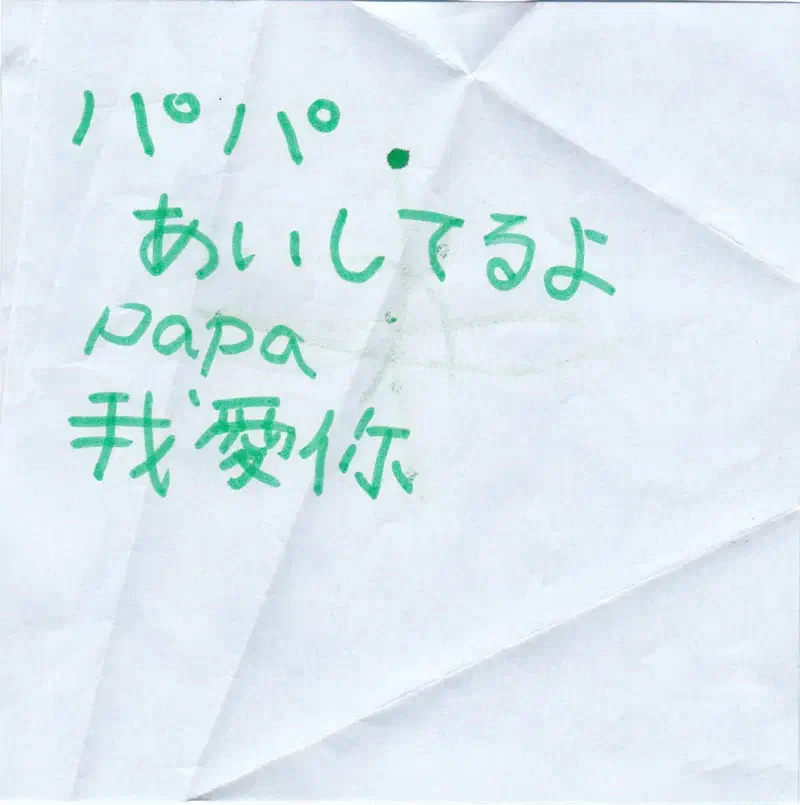 パパ.
あいしてるよ
papa
我愛你